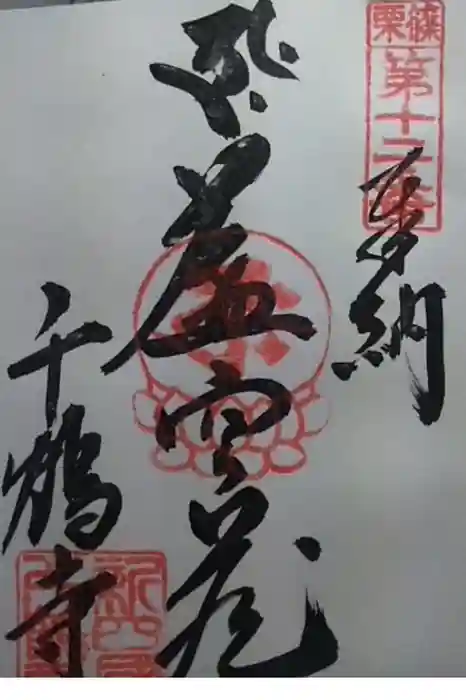 篠栗
第十二番
奉納
虚空蔵
千鶴寺
新四国